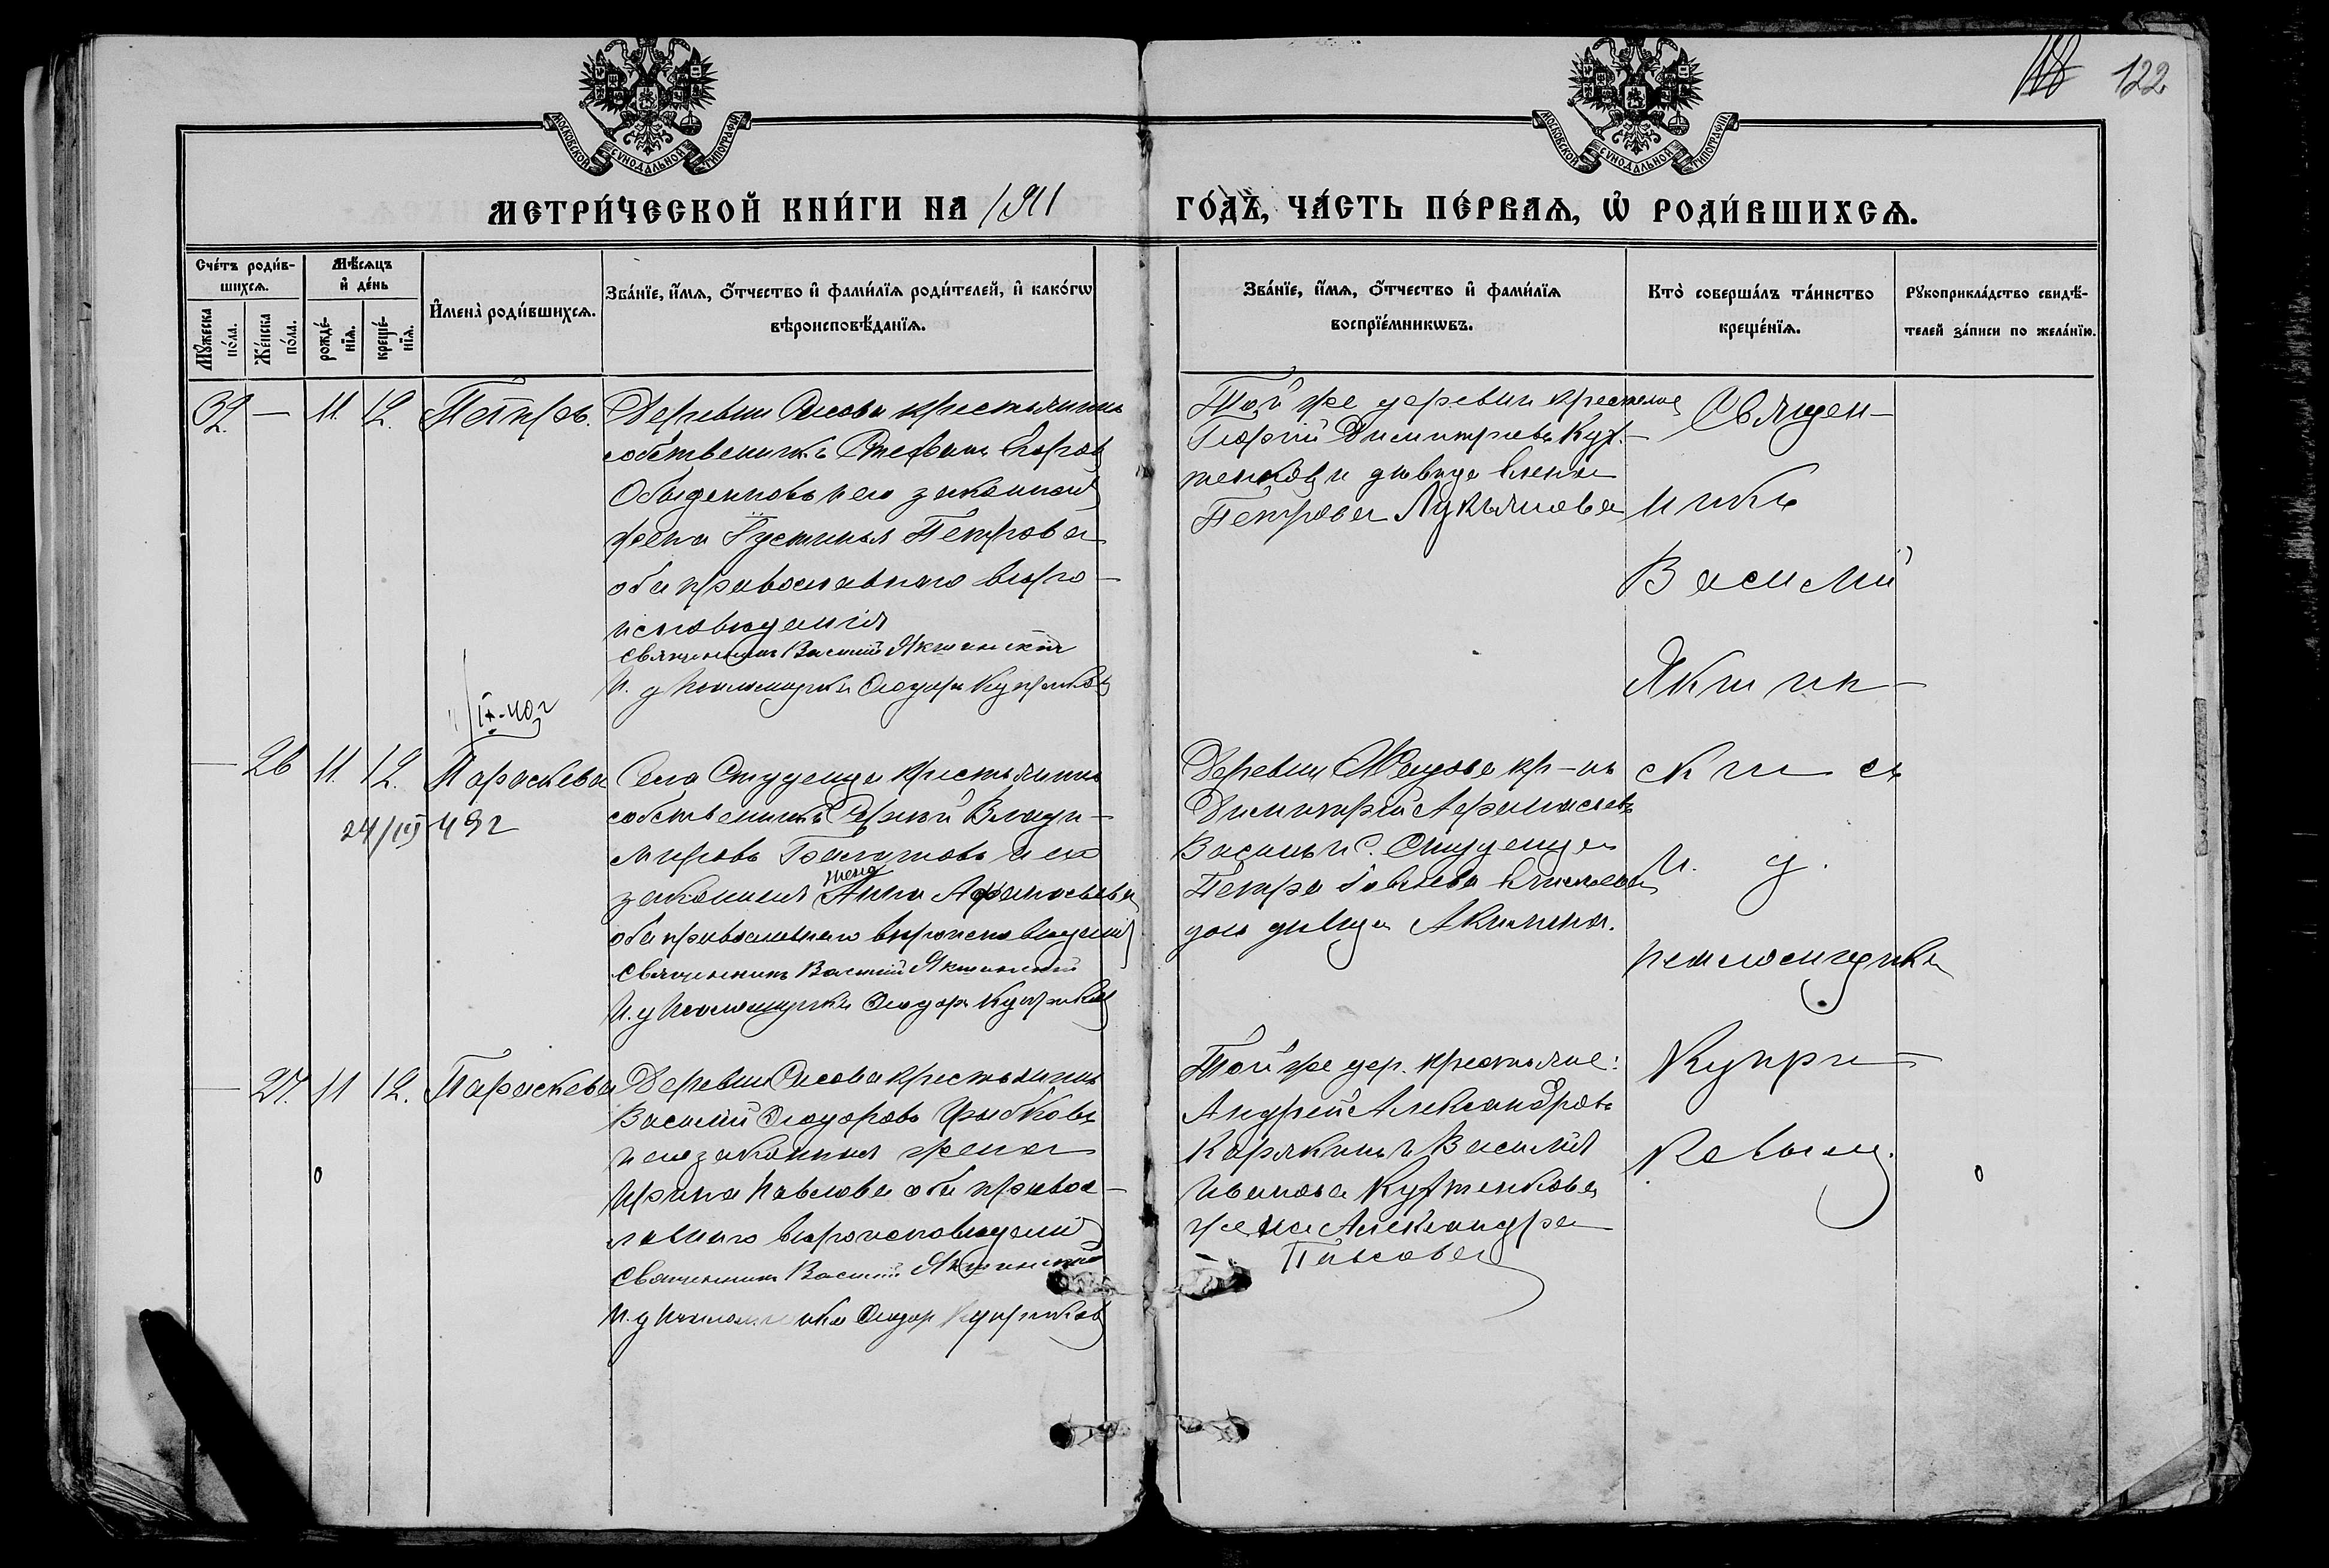 118 122
МОСКОВСКОЙ СѴНОДАЛЬНОЙ ТИПОГРАФІИ
МОСКОВСКОЙ СѴНОДАЛЬНОЙ ТИПОГРАФІИ
МЕТРИ́ЧЕСКОЙ КНИ́ГИ НА 1911 ГО́ДЪ, ЧА́СТЬ ПЕ́РВАѦ, Ѡ҆ РОДИ́ВШИХСѦ.
Сче́тъ роди́в-
шихсѧ.
Мѹ́жеска
по́ла.
Же́нска
по́ла.
Мѣ́сѧцъ
и҆ де́нь
рожде́-
нїѧ.
креще́-
нїѧ.
И҆мена̀ роди́вшихсѧ.
Зва́нїе, и҆́мѧ, ѻ҆́тчество и҆ фами́лїѧ роди́телей, и҆ како́гѡ
вѣроисповѣ́данїѧ.
Зва́нїе, и҆́мѧ, ѻ҆́тчество и҆ фами́лїѧ
воспрїе́мникѡвъ.
Кто̀ соверша́лъ та́инство
креще́нїѧ.
Рѹкоприкла́дство свидѣ́-
телей за́писи по жела́нїю.
32. — 11. 12. Петръ.
Деревни крестьянинъ
собственникъ Стефанъ
и его законная
жена Іустинья Петрова
оба православнаго вѣро-
исповѣданія
Священникъ Василій Якшинскій
И. д. псаломщика Ѳеодоръ Куприковъ
Той же деревни крестьяне
Георгій Димитріевъ
и дѣвица Елена
Петрова Лукьянова
Священ-
никъ
Василій
Якшин-
скій съ
и. д.
псаломщика
Купри-
ковым.
IX-40 г
— 26 11. 12. Параскева
24/III 49 г
Села Студенца крестьянинъ
собственникъ Сергій Влади-
міровъ и его
законная жена Анна Афанасьева
оба православнаго вѣроисповѣданія
Священникъ Василій Якшинскій
И. д. псаломщика Ѳеодоръ Куприковъ
Деревни кр-нъ
Димитрій Афанасьевъ
с. Студенца
Петра
дочь дѣвица Акилина.
— 27. 11 12. Параскева
Деревни крестьянинъ
Василій Ѳеодоровъ
и его законная жена
Ирина Павлова оба правос-
лавнаго вѣроисповѣданія
Священникъ Василій Якшинскій
И. д. псаломщика Ѳеодоръ Куприковъ
Той же дер. крестьяне:
Андрей Александровъ
Карякинъ и Василія
Иванова
жена Александра
Павлова